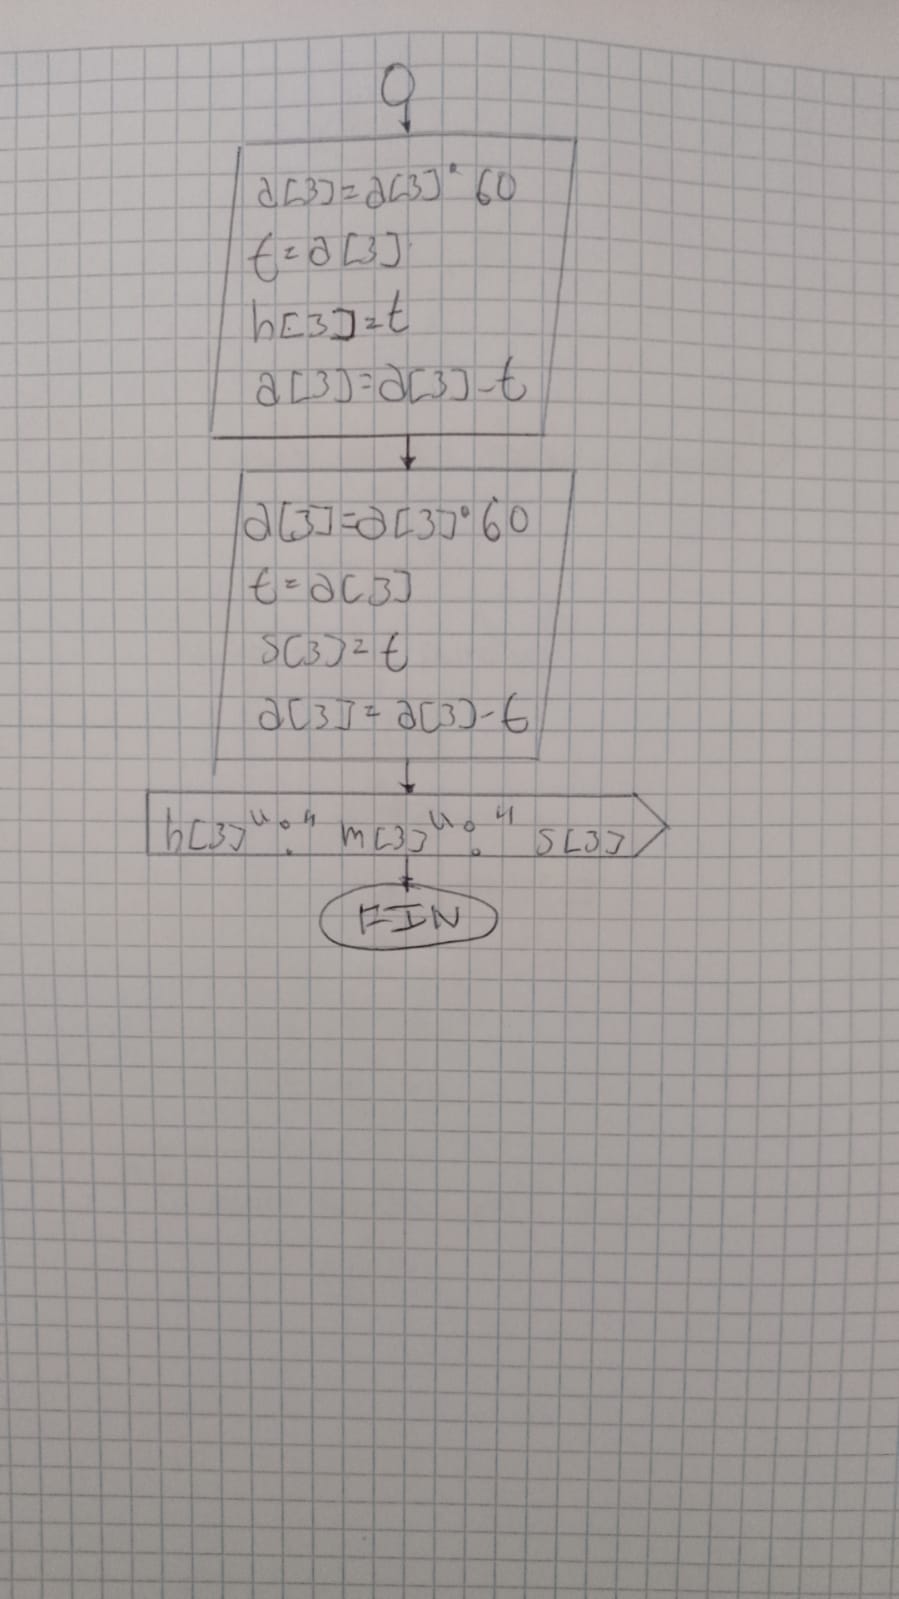 a[3]=a[3]·60
t=a[3]
h[3]=t
a[3]=a[3]-t
a[3]=a[3]·60
t=a[3]
s[3]=t
a[3]=a[3]-t
h[3]":" m[3]":" s[3]
FIN